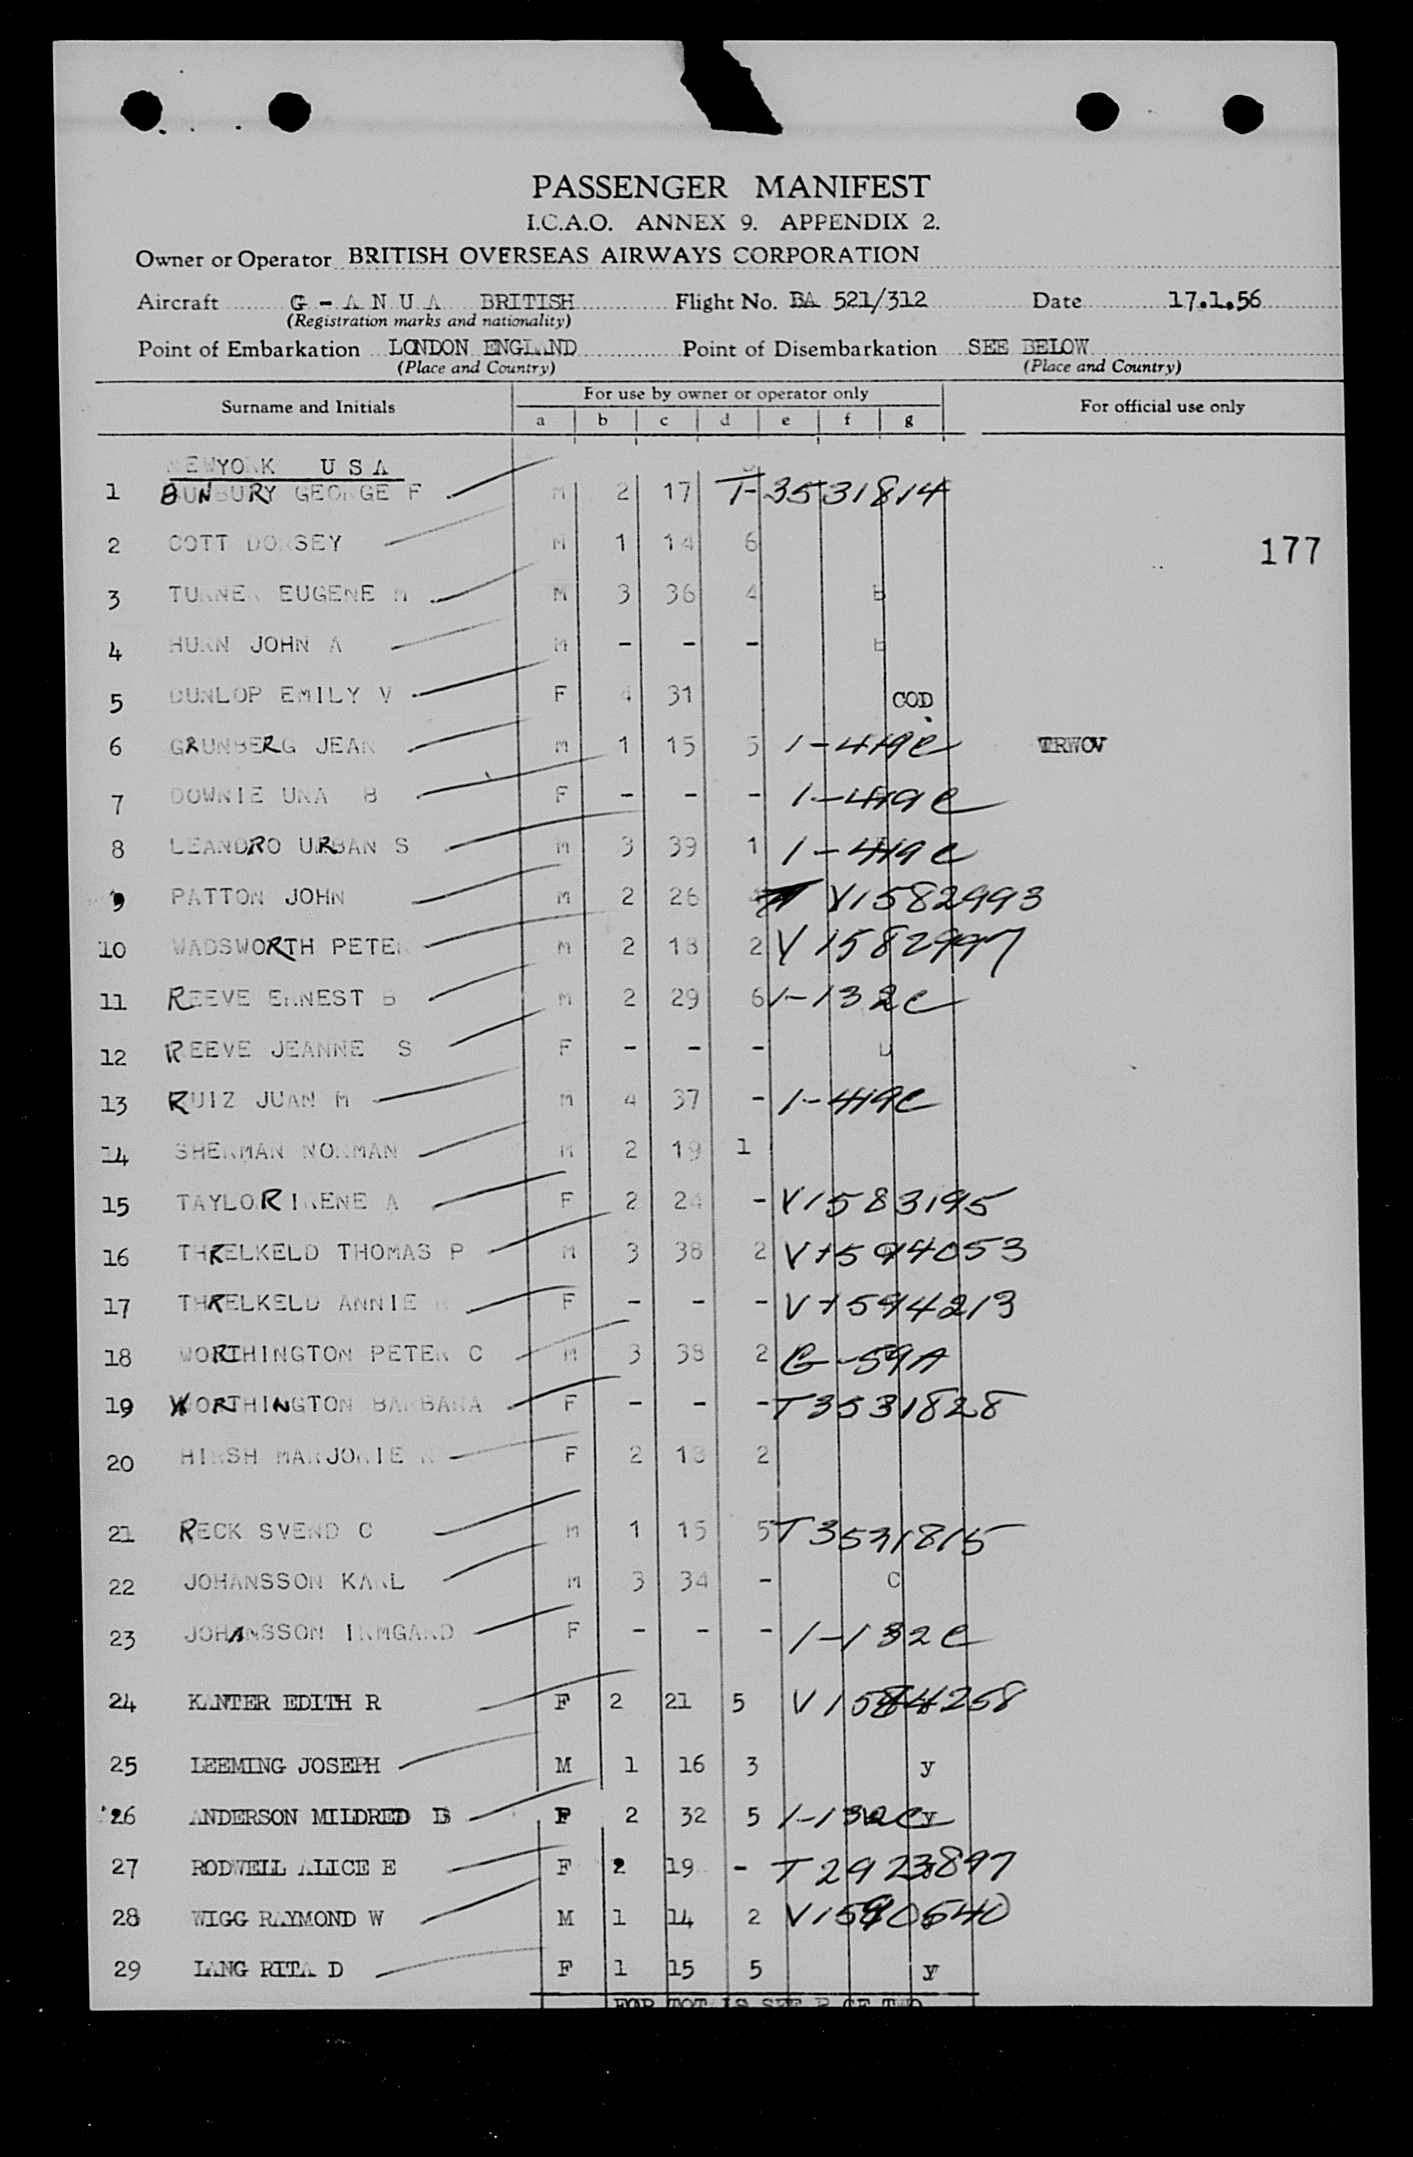 PASSENGER MANIFEST
I.C.A.O. ANNEX 9. APPENDIX 2.
Owner or Operator BRITISH OVERSEAS AIRWAYS CORPORATION
Aircraft G - A N U A BRITISH Flight No. BA 521/312 Date 17.1.56
(Registration marks and nationality)
Point of Embarkation LONDON ENGLAND Point of Disembarkation SEE BELOW
(Place and Country) (Place and Country)
Surname and Initials For use by owner or operator only For official use only
a b c d e f g
NEWYORK U S A
1 BUNBURY GEORGE F M 2 17 T-3531814
2 COTT DORSEY M 1 14 6
177
3 TURNER EUGENE M M 3 36 4 B
4 HURN JOHN A M - - -
5 DUNLOP EMILY V F 4 31 COD
6 GRUNBERG JEAN M 1 15 5 1-419C TRWOV
7 DOWNIE UNA B F - - - 1-419C
8 LEANDRO URBAN S M 3 39 1 1-419C
9 PATTON JOHN M 2 26 V1582993
10 WADSWORTH PETER M 2 18 2 V1582997
11 REEVE ERNEST B M 2 29 6 1-132C
12 REEVE JEANNE S F - - -
13 RUIZ JUAN M M 4 37 - 1-419C
14 SHERMAN NORMAN M 2 19 1
15 TAYLOR IRENE A F 2 24 - V1583195
16 THRELKELD THOMAS P M 3 38 2 V1594053
17 THRELKELD ANNIE F - - - V1594213
18 WORTHINGTON PETER C M 3 38 2 G-59A
19 WORTHINGTON BARBARA F - - - T3531828
20 HIRSH MARJORIE F 2 18 2
21 RECK SVEND C M 1 15 5 T3531815
22 JOHANSSON KARL M 3 34 - C
23 JOHANSSON IRMGARD F - - - 1-132C
24 KANTER EDITH R F 2 21 5 V1584258
25 LEEMING JOSEPH M 1 16 3 y
26 ANDERSON MILDRED B F 2 32 5 1-132C y
27 RODWELL ALICE E F 2 19 - T2923897
28 WIGG RAYMOND W M 1 14 2 V1590540
29 LANG RITA D F 1 15 5 y
FOR TOTALS SEE PAGE TWO